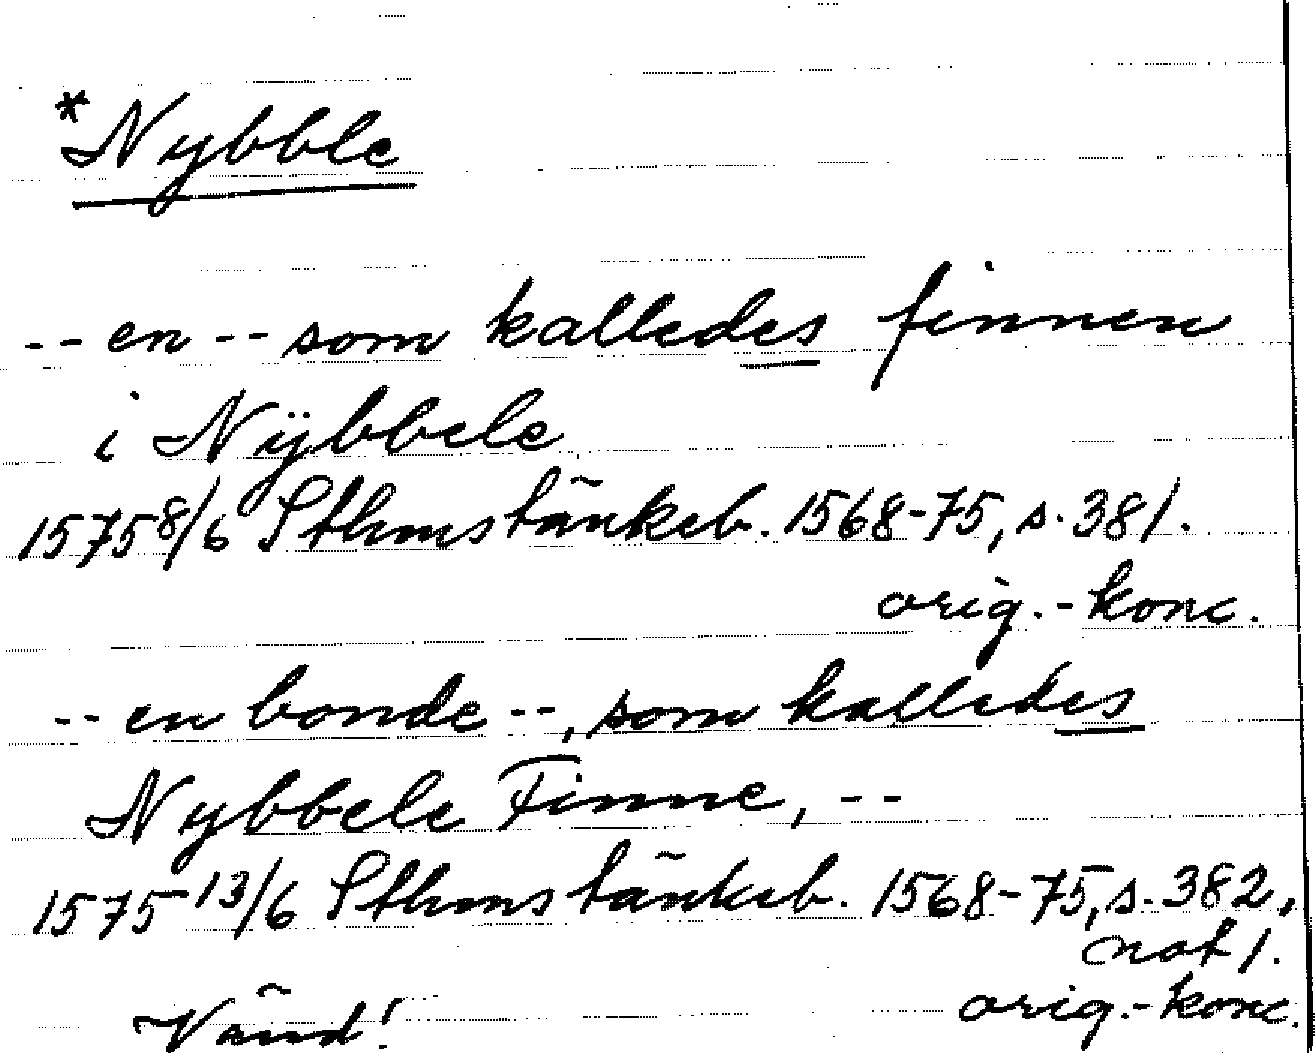 *Nybble
-- en -- som kalledes finnen
i Nÿbbele
1575 8/6 Sthms tänkeb. 1568-75, s. 381.
orig.-konc.
-- en bonde --, som kalledes
Nybbele Finne, --
1575 13/6 Sthms tänkeb. 1568-75, s. 382,
not 1.
orig.-konc.
Vänd!